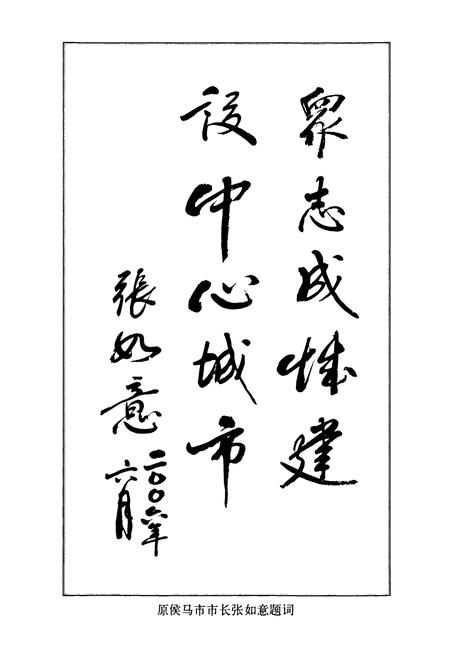 眾志成城建
設中心城市
張如意
二〇〇六年
六月
原侯马市市长张如意题词